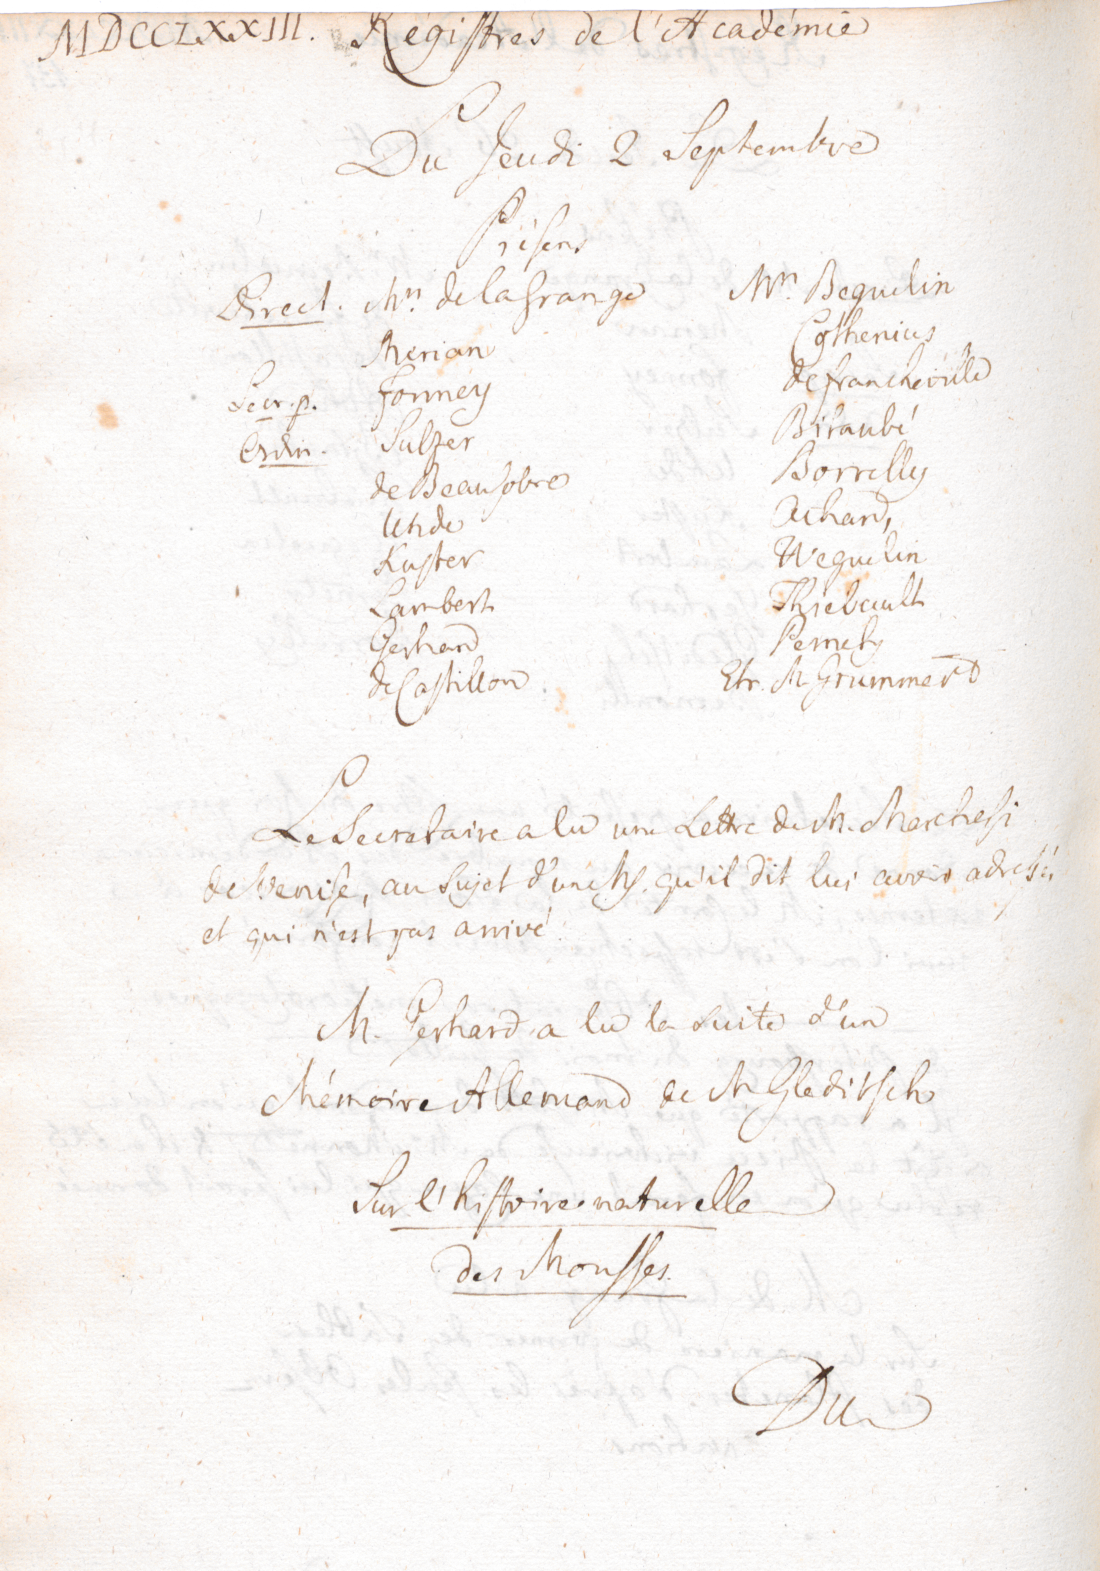 MDCCLXXIII. Registres de l'Académie
Du Jeudi 2 Septembre
Présens
Direct. Mrs. de la Grange
Merian
Secr. p. Formey
Ordin. Sulzer
de Beausobre
Uhde
Kuster
Lambert
Gerhard
de Castillon
Mrs. Beguelin
Cothenius
de Francheville
Bitaubé
Borrelly
Achard,
Weguelin
Thiebault
Pernety
Etr. M. Grummert
Le Secretaire a lu une Lettre de M. Marchesi
de Venise, au sujet d'un Ms. qu'il dit lui avoir adressé
et qui n'est pas arrivé.
M. Gerhard a lu la suite d'un
Mémoire Allemand de M Gleditsch
Sur l'histoire naturelle
des Mousses.
Du